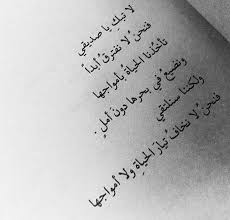 لا تبكِ يا صديقي
فنحنُ لا نفترقُ أبداً
تأخذنا الحياةُ بأمواجها
ونضيعُ في بحرها دونَ أملٍ
ولكننا سنلتقي
فنحنُ لا نخافُ تيارَ الحياةِ ولا أمواجها